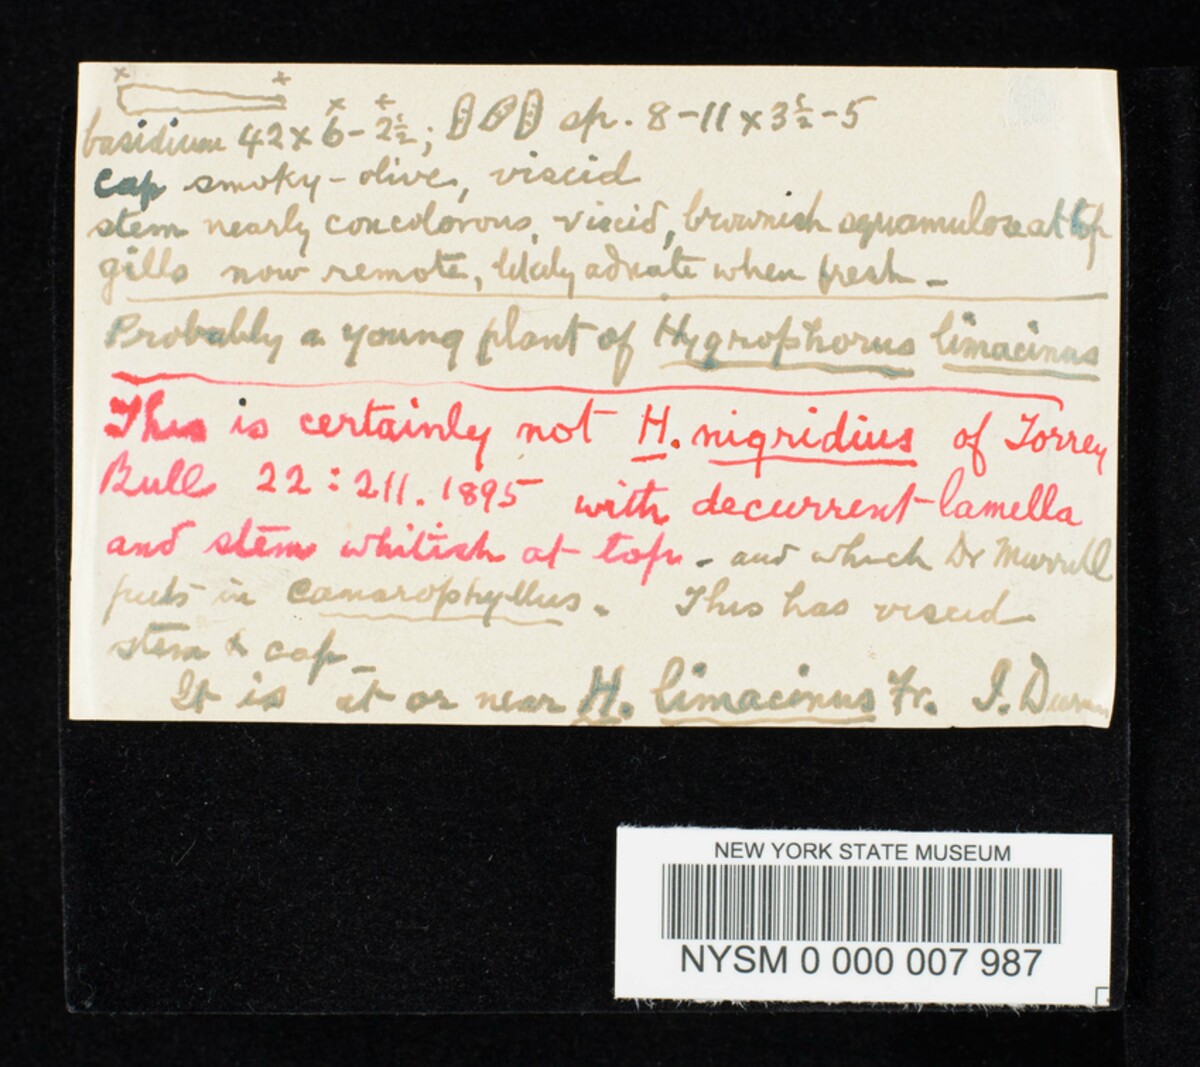 basidium 42 x 6 - 2½; sp. 8-11 x 3½-5
cap smoky-olive, viscid
stem nearly concolorous, viscid, brownish squamulose at top
gills now remote, likely adnate when fresh -
Probably a young plant of Hygrophorus limacinus
This is certainly not H. nigridius of Torrey
Bull 22:211. 1895 with decurrent lamella
and stem whitish at top - and which Dr Murrill
puts in Camarophyllus. This has viscid
stem & cap -
It is at or near H. limacinus Fr. I.
NEW YORK STATE MUSEUM
NYSM 0 000 007 987